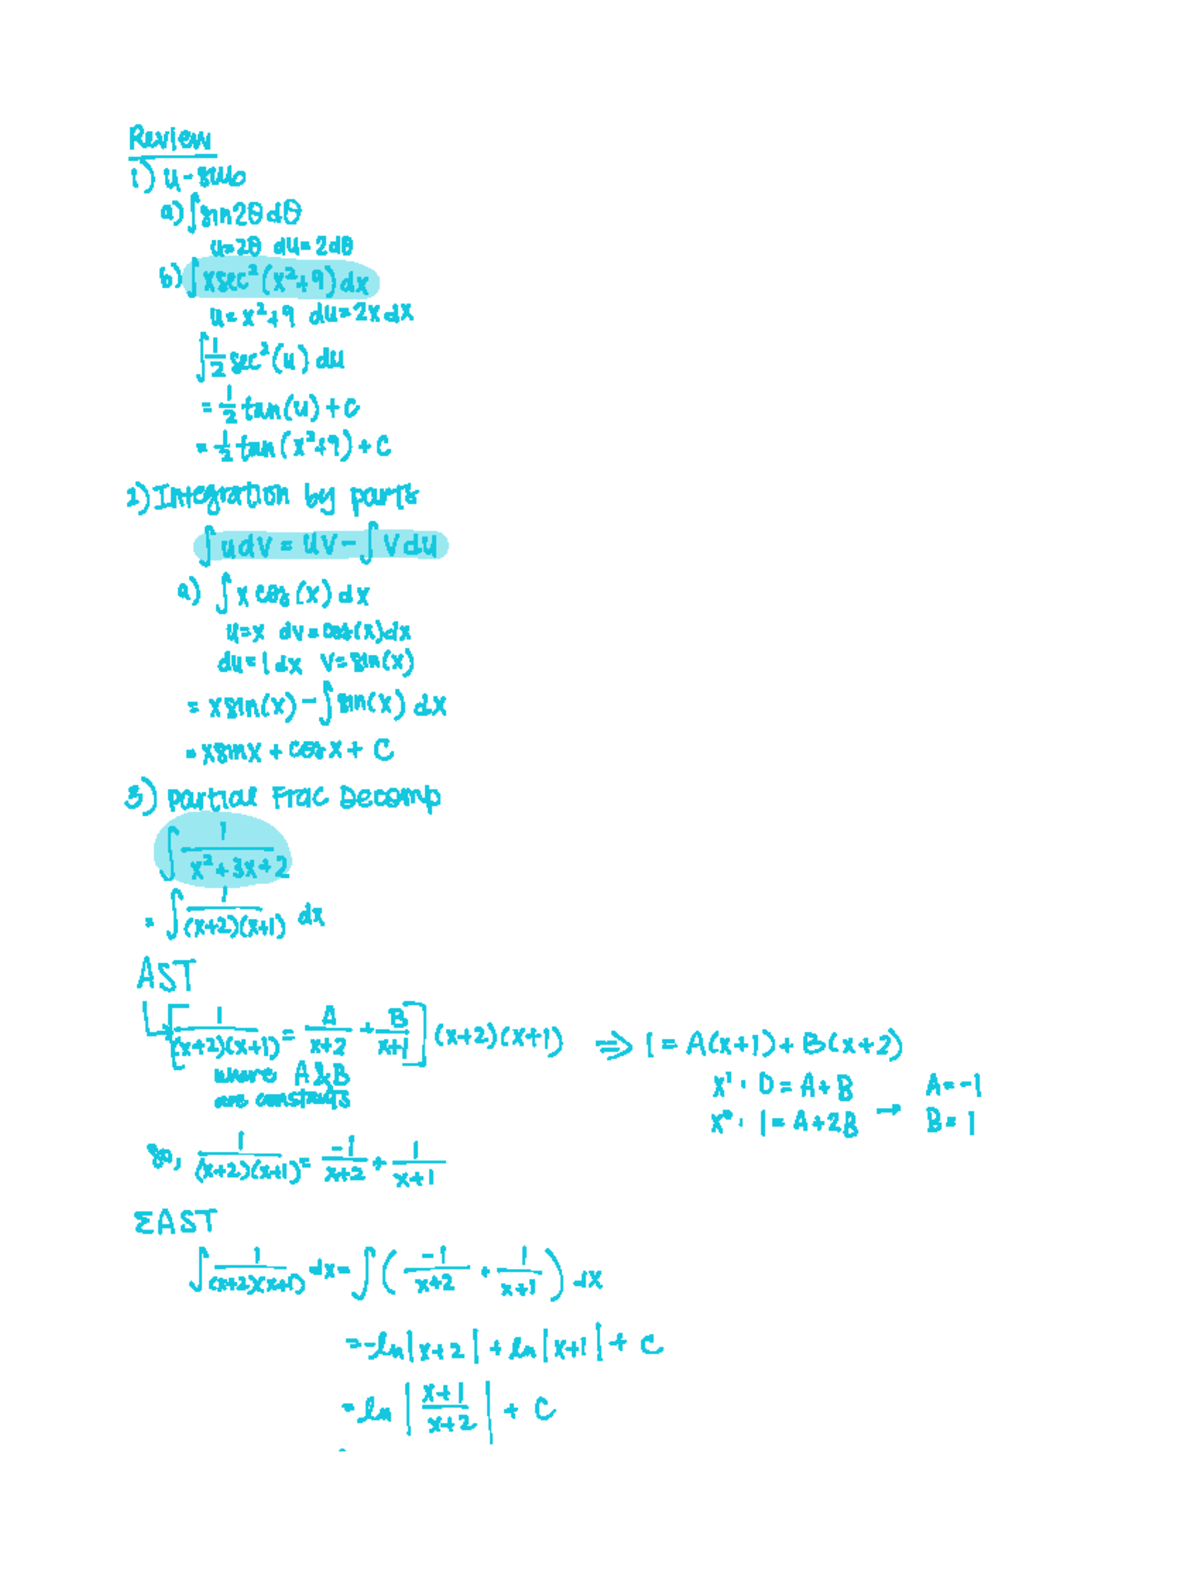 Review
1) u-sub
a) ∫sin2θdθ
u=2θ du=2dθ
b) ∫xsec²(x²+9)dx
u=x²+9 du=2xdx
∫1/2 sec²(u) du
= 1/2 tan(u)+c
= 1/2 tan(x²+9)+C
2) Integration by parts
∫udV = UV-∫Vdu
a) ∫x cos(x)dx
u=x dv=cos(x)dx
du=1dx v=sin(x)
= xsin(x)-∫sin(x) dx
= xsinx + cosx + C
3) Partial Frac Decomp
∫ 1/(x²+3x+2)
= ∫ 1/((x+2)(x+1)) dx
AST
[1/((x+2)(x+1)) = A/(x+2) + B/(x+1)] (x+2)(x+1) ⇒ 1 = A(x+1)+B(x+2)
where A&B
are
x¹: 0=A+B → A=-1
x⁰: 1=A+2B B=1
so, 1/((x+2)(x+1)) = -1/(x+2) + 1/(x+1)
ΣAST
∫ 1/((x+2)(x+1)) dx = ∫( -1/(x+2) + 1/(x+1) ) dx
= -ln|x+2| + ln|x+1| + C
= ln |(x+1)/(x+2)| + C